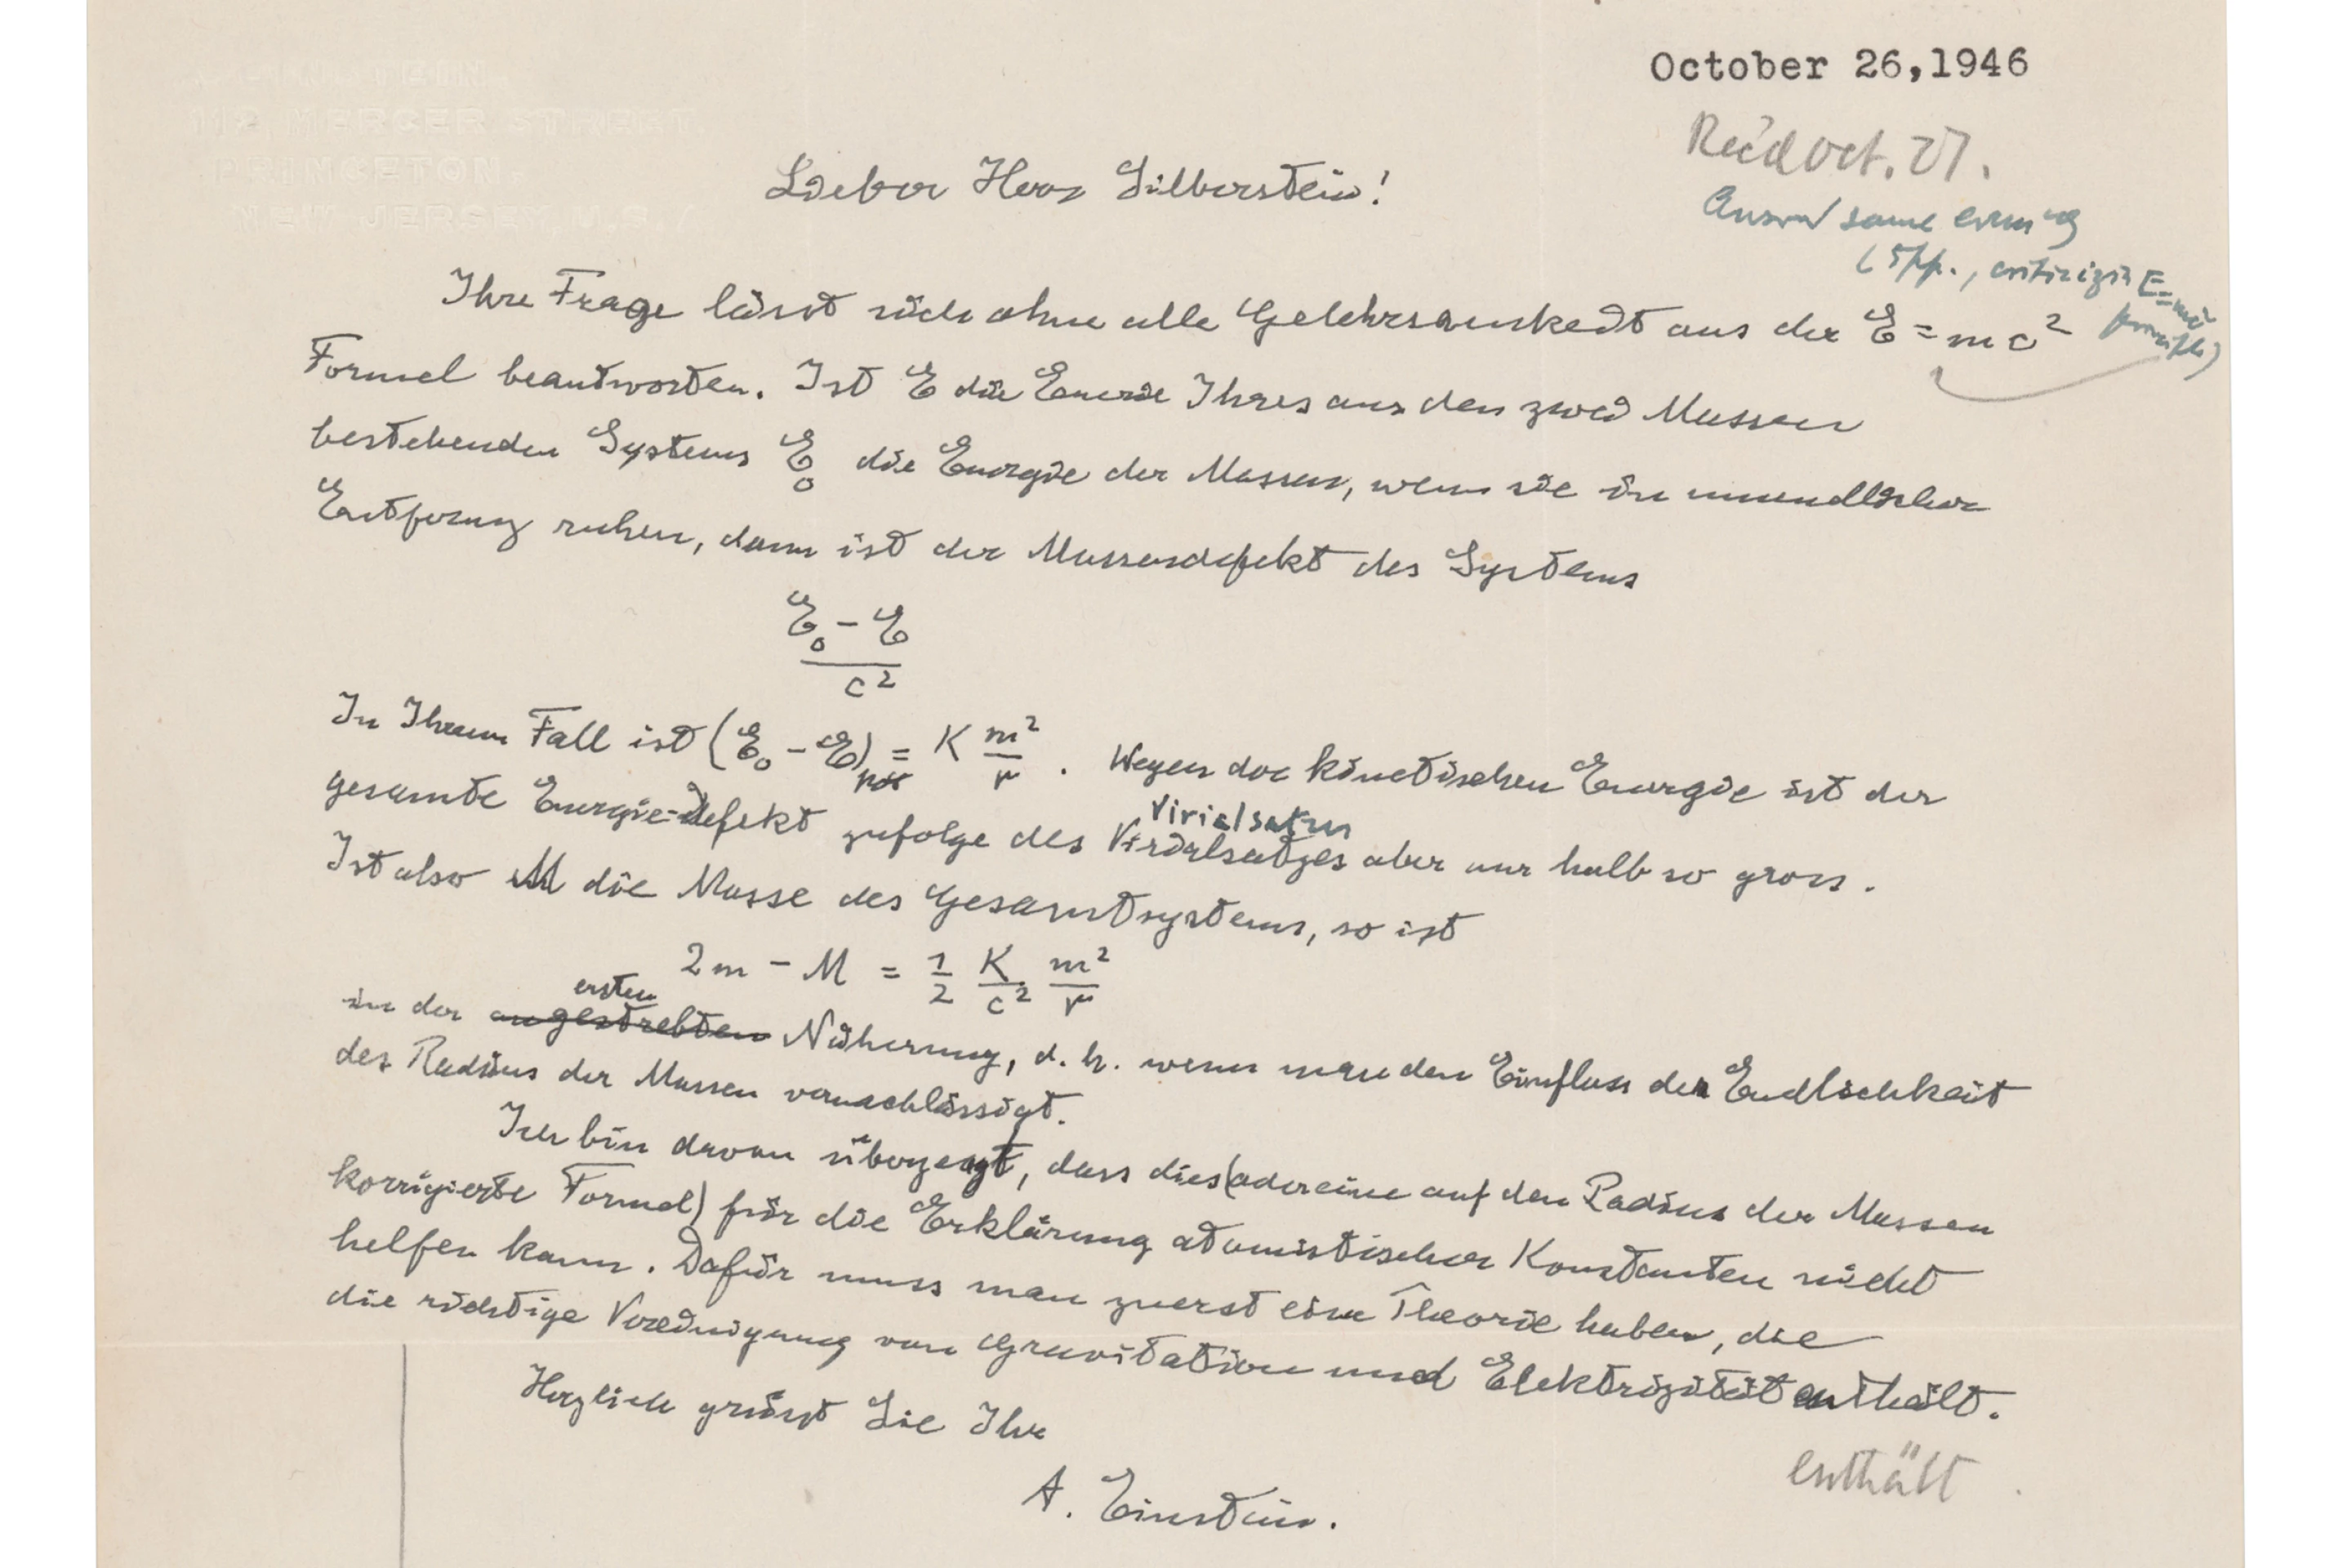 A. EINSTEIN
112, MERCER STREET,
PRINCETON
NEW JERSEY, U.S.A.
October 26, 1946
Rec'd Oct. 27.
Answ same evening
(5pp., criticizing E=mc²
principle)
Lieber Herr Silberstein!
Ihre Frage lässt sich ohne alle Gelehrsamkeit aus der E = mc²
Formel beantworten. Ist E die Energie Ihres aus den zwei Massen
bestehenden Systems E₀ die Energie der Massen, wenn sie in unendlicher
Entfernung ruhen, dann ist der Massendefekt des Systems
E₀ - E
c²
In Ihrem Fall ist (E₀ - E)pot = K m²/r. Wegen der kinetischen Energie ist der
Virialsatzes
gesamte Energie-Defekt zufolge des Virialsatzes aber nur halb so gross.
Ist also M die Masse des Gesamtsystems, so ist
2m - M = 1/2 K/c² m²/r
ersten
in der angestrebten Näherung, d. h. wenn man den Einfluss der Endlichkeit
des Radius der Massen vernachlässigt.
Ich bin davon überzeugt, dass dies (oder eine auf den Radius der Massen
korrigierte Formel) für die Erklärung atomistischer Konstanten nicht
helfen kann. Dafür muss man zuerst eine Theorie haben, die
die richtige Vereinigung von Gravitation und Elektrizität enthält.
Herzlich grüsst Sie Ihr
enthält
A. Einstein.